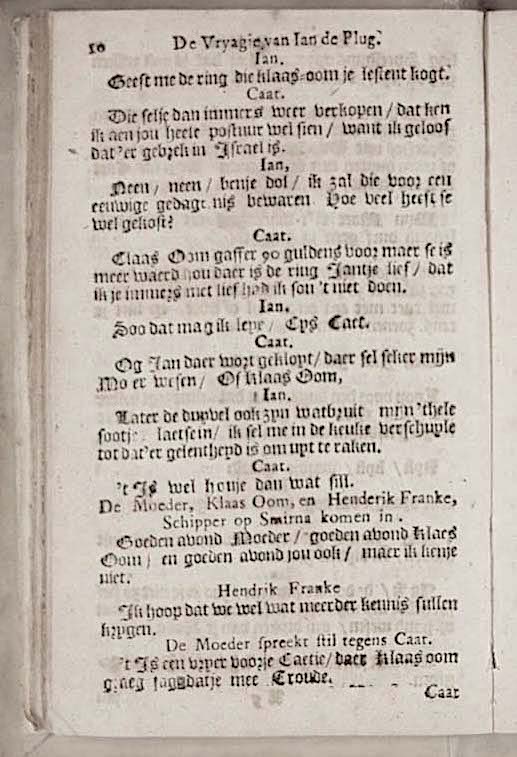 10 De Vryagie van Ian de Plug.
Ian.
Geeft me de ring die klaas-oom je lestent kogt.
Caat.
Die selje dan immers weer verkopen / dat ken
ik aen jou heele postuur wel sien / want ik geloof
dat 'er gebrek in Israel is.
Ian,
Neen / neen / benje dol / ik zal die voor een
eeuwige gedagtenis bewaren Hoe veel heeft se
wel gekost?
Caat.
Claas Oom gaffer 90 guldens voor maer se is
meer waerd nou daer is de ring Jantje lief / dat
ik je immers niet lief had ik sou 't niet doen.
Ian.
Soo dat mag ik leye / Eys Caet.
Caat.
Og Jan daer wort geklopt / daer sel seker mijn
Mo er wesen / Of klaas Oom,
Ian.
Later de duyvel ook zyn watbruit mijn 'thele
sootj laetse in / ik sel me in de keuke verschuyle
tot dat'er gelentheyd is om uyt te raken.
Caat.
't Is wel houje dan wat stil.
De Moeder, Klaas Oom, en Henderik Franke,
Schipper op Smirna komen in.
Goeden avond Moeder / goeden avond Klaes
Oom / en goeden avond jou ook / maer ik kenje
niet.
Hendrik Franke
Ik hoop dat we wel wat meerder kennis sullen
krygen.
De Moeder spreekt stil tegens Caat.
't Is een vryer voorje Caetie / daer Klaas oom
graeg sag datje mee Troude.
Caat